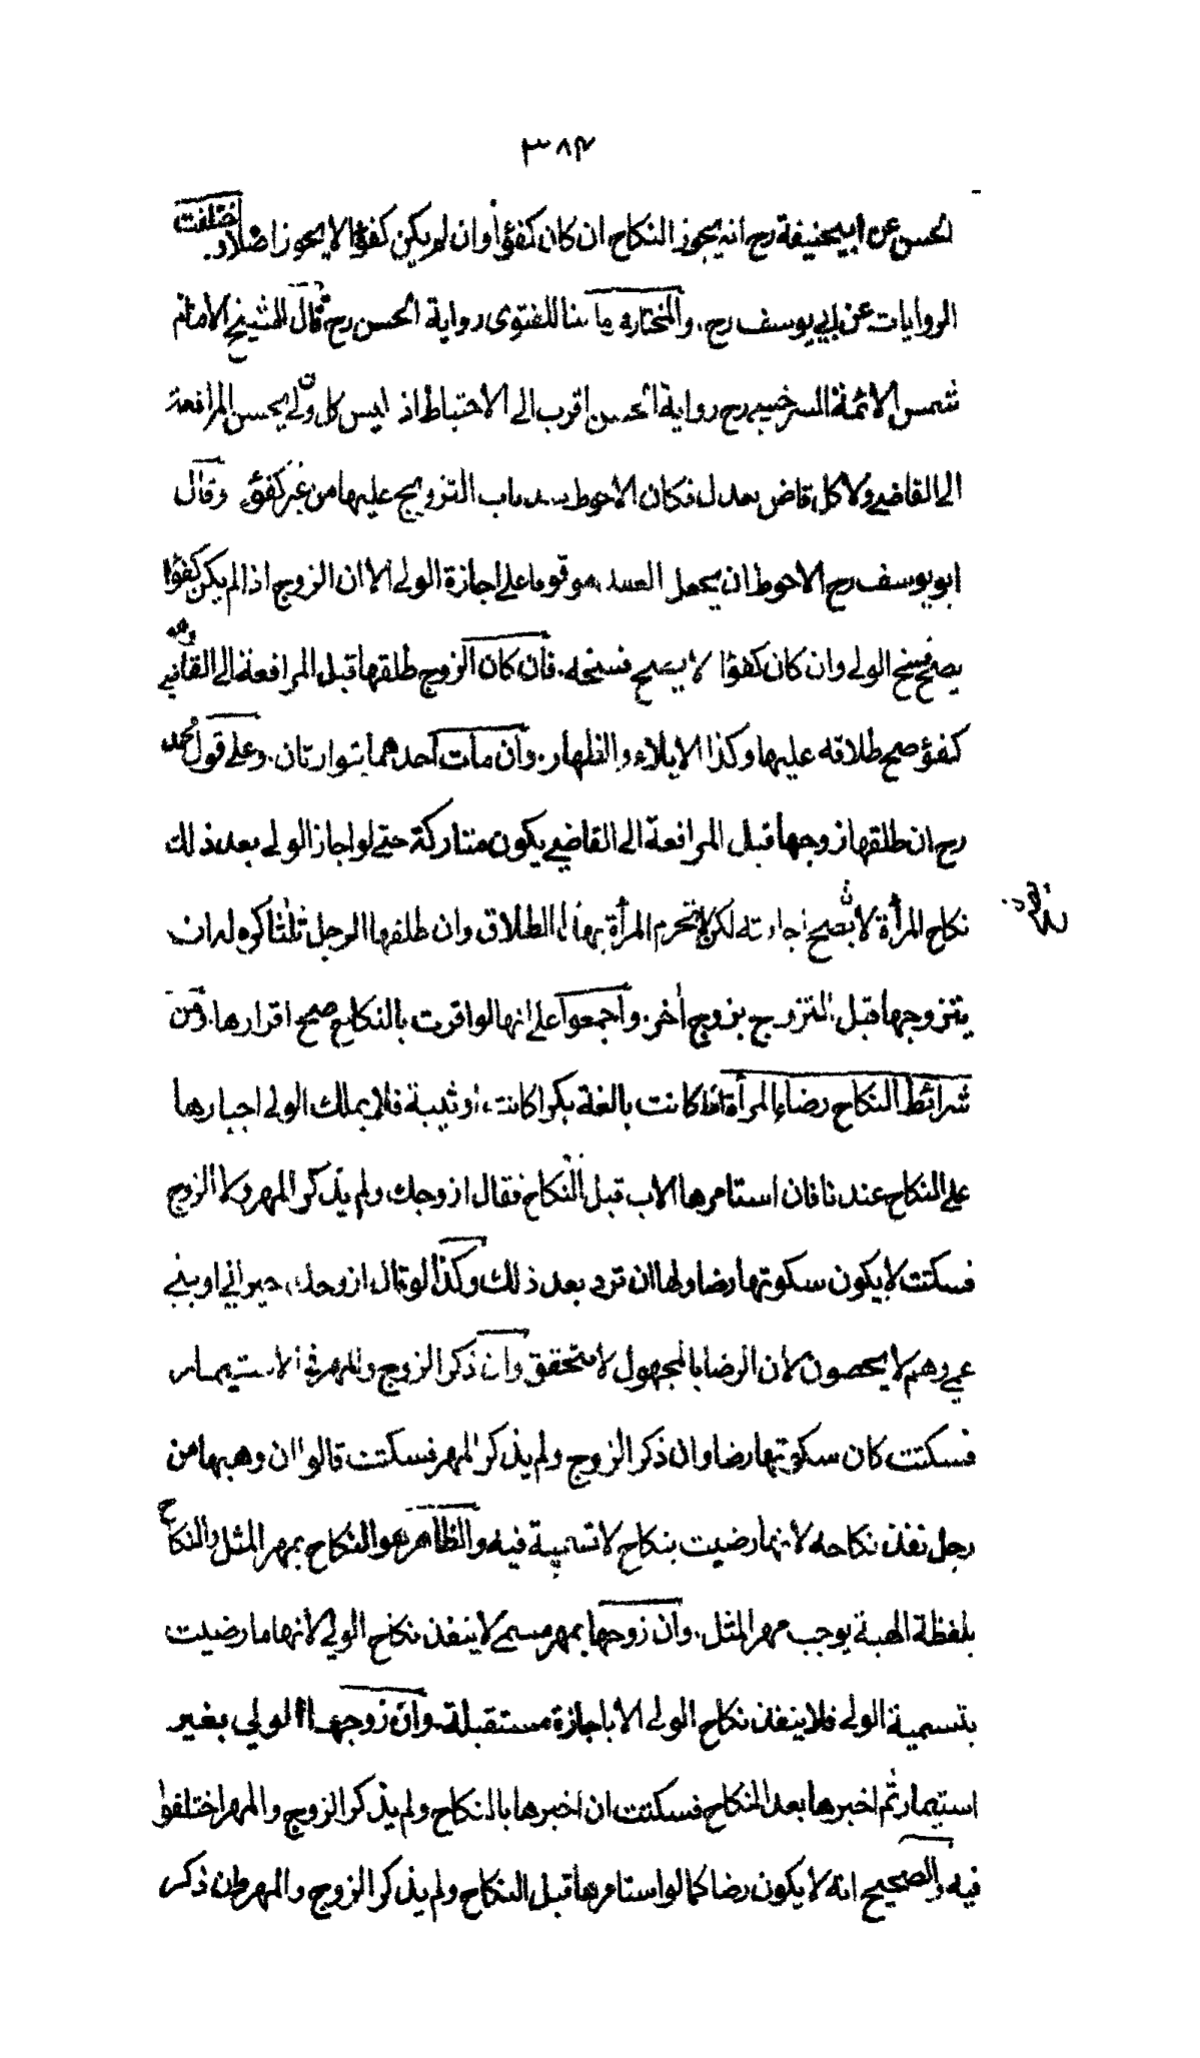 ٣٨٤
الحسن عن ابيحنيفة رح انه يجوز النكاح ان كان كفؤا وان لم يكن كفؤا لا يجوز اصلا و اختلفت
الروايات عن ابي يوسف رح. والمختار في زماننا للفتوى رواية الحسن رح قال الشيخ الامام
شمس الائمة السرخسي رح رواية الحسن اقرب الى الاحتياط اذ ليس كل ولي يحسن المرافعة
الى القاضي ولا كل قاض يعدل فكان الاحوط سد باب التزويج عليها من غير كفؤ وقال
ابو يوسف رح الاحوط ان يجعل العقد موقوفا على اجازة الولي الا ان الزوج اذا لم يكن كفؤا
يصح فسخ الولي وان كان كفؤا لا يصح فسخه. فان كان الزوج طلقها قبل المرافعة الى القاضي وهو
كفؤ صح طلاقه عليها وكذا الايلاء والظهار. وان مات احدهما يتوارثان. وعلى قول محمد
رح ان طلقها زوجها قبل المرافعة الى القاضي يكون متاركة حتى لو اجاز الولي بعد ذلك
نكاح المرأة لا يصح اجازته لكن لا تحرم المرأة بهذا الطلاق وان طلقها الرجل ثلثا كره له ان
يتزوجها قبل التزوج بزوج أخر. واجمعوا على انها لو اقرت بالنكاح صح اقرارها. ومن
شرائط النكاح رضاء المرأة اذا كانت بالغة بكرا كانت او ثيبة فلا يملك الولي اجبارها
على النكاح عندنا فان استامرها الاب قبل النكاح فقال ازوجك ولم يذكر المهر ولا الزوج
فسكتت لا يكون سكوتها رضا ولها ان ترد بعد ذلك وكذا لو قال ازوجك جيراني او بني
عمي وهم لا يحصون لان الرضا بالمجهول لا يتحقق وان ذكر الزوج والمهر في الاستيمار
فسكتت كان سكوتها رضا وان ذكر الزوج ولم يذكر المهر فسكتت قالوا ان وهبها من
رجل نفذ نكاحه لانها رضيت بنكاح لا تسمية فيه والظاهر هو النكاح بمهر المثل والنكاح
بلفظة الهبة يوجب مهر المثل. وان زوجها بمهر مسمى لا ينفذ نكاح الولي لانها ما رضيت
بتسمية الولي فلا ينفذ نكاح الولي الا باجازة مستقبلة. وان زوجها الولي بغير
استيمار ثم اخبرها بعد النكاح فسكتت ان اخبرها بالنكاح ولم يذكر الزوج والمهر اختلفوا
فيه والصحيح انه لا يكون رضا كما لو استامرها قبل النكاح ولم يذكر الزوج والمهر وان ذكر